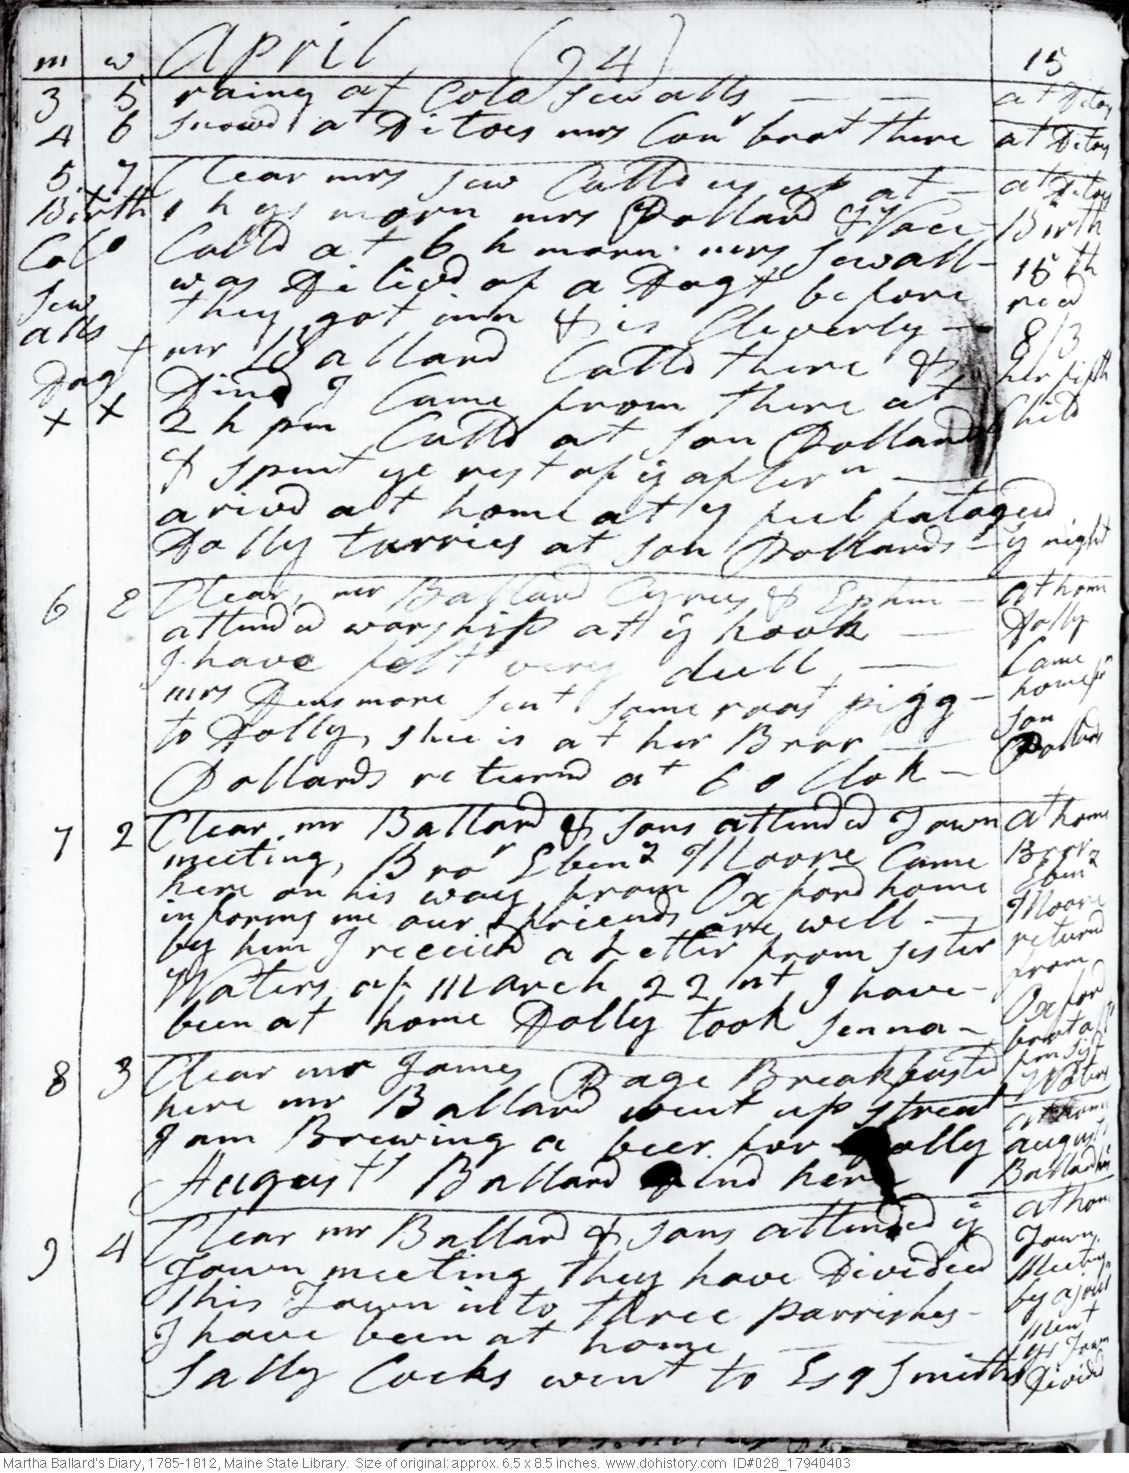 m w April (94) 15
3 5 rainy at Colo Sewalls — — at Ditos
4 6 Snowd, at Ditoes mrs Conr brot there at Ditos
5 7 Clear mrs Sew Calld us up at — at Ditos
Birth 1 h ys morn mrs Pollard & Birth
Colo Calld at 6 h morn. mrs Sewall 15th
was Delivd of a Dagt before recd
Sew they got inn & is Cleverly — 8/3
alls mr Ballard Calld there & her fifth
Dagt Dind I Came from there at Child
x x 2 h pm Calld at Son Pollards
& spent ye rest of ys aftern —
arivd at home at feel fatagud
Dolly turries at Son Pollards — ys night
6 E Clear, mr Ballard Cyrus & Ephm — at home
attended worship at ys hook — Dolly
I have felt very dull — Came
mrs Densmore sent some roast pigg — home fm
to Dolly, shee is at her Bror — Son
Pollards returnd at 6 oClok — Pollards
7 2 Clear, mr Ballard & Sons attended Town at home
meeting, Bror Ebenz Moore Came Bror
here on his way from Oxford home Ebenz
informs me our friends are well — Moore
by him I receivd a Letter from Sister returnd
Waters of March 22 nt I have — from
been at home Dolly took Senna — Oxford
brot a
fm Sist
Waters
8 3 Clear mr James Page Breakfasted
here mr Ballard went up stream at home
I am Brewing a beer. for Dolly augusts
Augusts Ballard Dind here Ballard here
9 4 Clear mr Ballard & sons attended ys at home
Town meeting they have Divided Town
this Town into three parrishes — Meeting
I have been at home — — by ajorn
Sally Cocks went to Esq Smiths ment
ys Town
Divided
Martha Ballard's Diary, 1785-1812, Maine State Library. Size of original: approx. 6.5 x 8.5 inches. www.dohistory.com ID#028_17940403